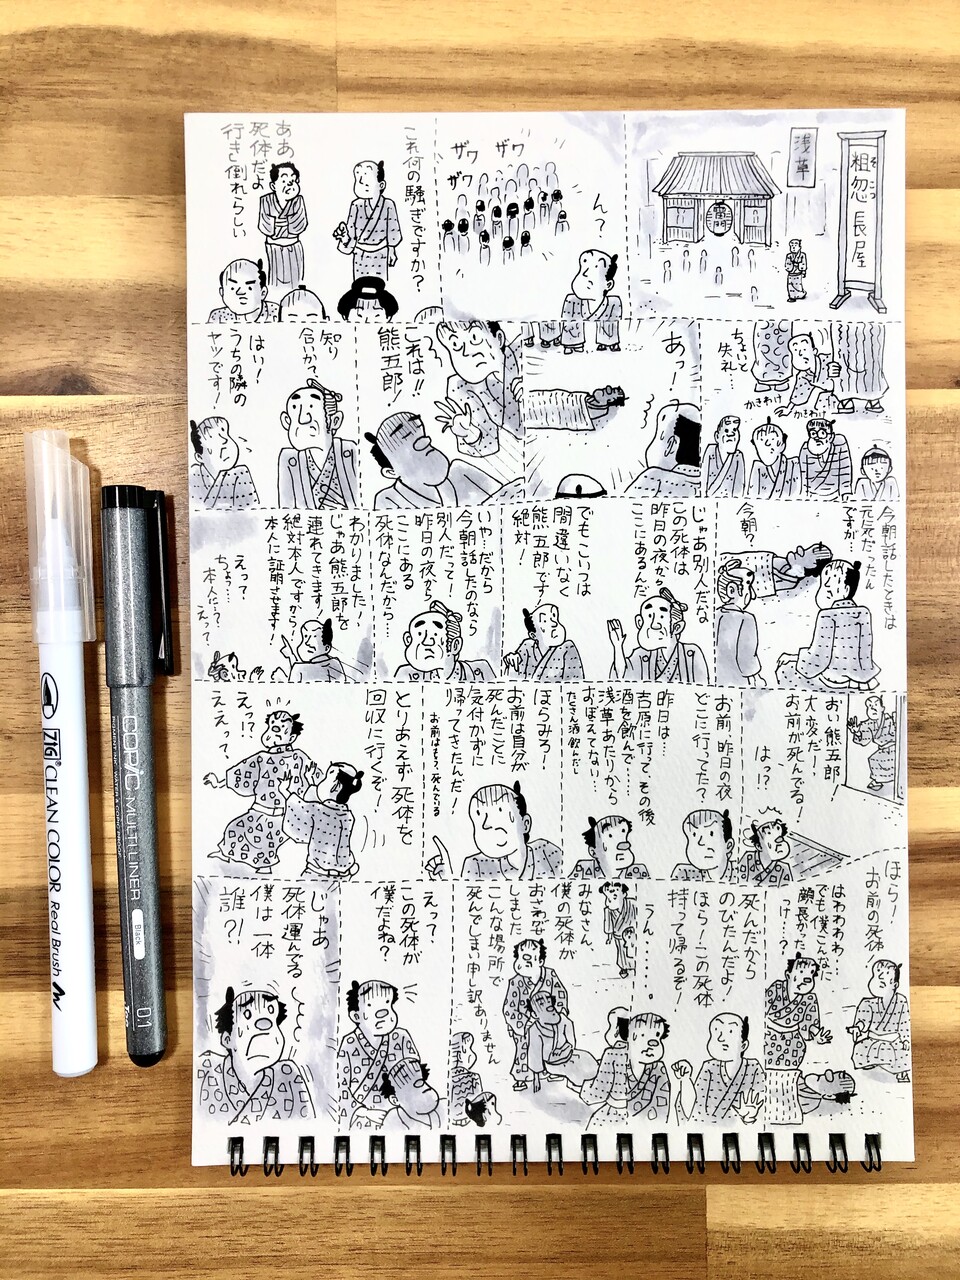 粗忽長屋
そこつ
浅草
雷門
ん?
ザワ
ザワ
ザワ
これ何の騒ぎですか?
ああ
死体だよ
行き倒れらしい
ちょいと
失礼…
かきわけ
かきわけ
あっ!
これは!!
熊五郎!
知り
合いかて
はい!
うちの隣の
ヤツです!
今朝話したときは
元気だったん
ですが…
今朝?
じゃあ別人だな
この死体は
昨日の夜から
ここにあるんだ
でもこいつは
間違いなく
熊五郎です
絶対!
いや…だから
今朝話したのなら
別人だって!
昨日の夜から
ここにある
死体なんだから…
わかりました!
じゃあ熊五郎を
連れてきます!
絶対本人ですから!
本人に証明させます!
えっ?
ちょっ…
本人に!?
えっ?
おい熊五郎!
大変だー!
お前が死んでる!
はっ?
お前、昨日の夜
どこに行ってた?
昨日は…
吉原に行って、その後
酒を飲んで……
浅草あたりから
おぼえてない…
たくさん酒飲んだし
ほらみろ!
お前は自分が
死んだことに
気付かずに
帰ってきたんだ!
お前はもう、死んでいる
とりあえず死体を
回収に行くぞ!
えっ?
ええっ?
ほら!
お前の死体
はわわわわ
でも僕こんなに
顔長かったっけ…?
死んだから
のびたんだよ!
ほら!この死体
持って帰るぞ!
うん・・・・・。
みなさん、
僕の死体が
おさわがせ
しました
こんな場所で
死んでしまい申し訳ありません
えっ?
この死体が
僕だよね?
じゃあ
死体運んでる
僕は一体
誰?!
ZIG CLEAN COLOR Real Brush
COPIC MULTILINER
PIGMENT INK WATER & COPIC PROOF
Black
0.1